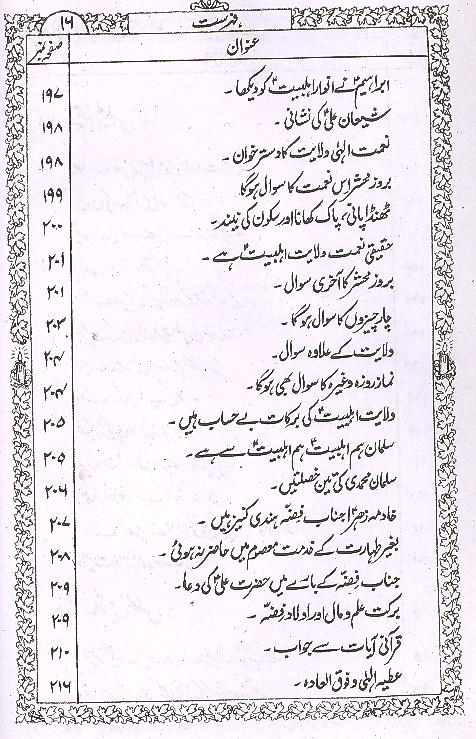 ۱۶ فہرست
عنوان صفحہ نمبر
ابراہیمؑ نے انوار اہلبیتؑ کو دیکھا۔ ۱۹۷
شیعیان علیؑ کی نشانی۔ ۱۹۸
نعمت الٰہی ولایت کا دسترخوان۔ ۱۹۸
بروز محشر اس نعمت کا سوال ہوگا ۱۹۹
ٹھنڈا پانی، پاک کھانا اور سکون کی نیند۔ ۲۰۰
حقیقی نعمت ولایت اہلبیتؑ ہے۔ ۲۰۱
بروز محشر کا آخری سوال۔ ۲۰۱
چار چیزوں کا سوال ہوگا۔ ۲۰۳
ولایت کے علاوہ سوال۔ ۲۰۴
نماز روزہ وغیرہ کا سوال بھی ہوگا۔ ۲۰۴
ولایت اہلبیتؑ کی برکات بے حساب ہیں۔ ۲۰۵
سلمان ہم اہلبیتؑ ہم اہلبیتؑ سے ہے۔ ۲۰۵
سلمان محمدی کی تین خصلتیں۔ ۲۰۶
خادمہ زھراؑ جناب فِضّہ ہندی کنیز ہیں۔ ۲۰۷
بغیر طہارت کے خدمت معصوم میں حاضر نہ ہوئی۔ ۲۰۸
جناب فِضّہ کے بارے میں حضرت علیؑ کی دعا۔ ۲۰۹
برکت علم و مال اور اولاد فِضّہ۔ ۲۰۹
قرآنی آیات سے جواب۔ ۲۱۰
عطیہ الٰہی و فوق العادہ۔ ۲۱۶